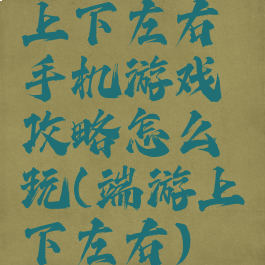 上下左右
手机游戏
攻略怎么
玩(端游上
下左右)